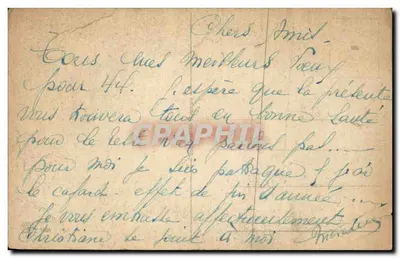 Chers Amis
Tous mes meilleurs Voeux
pour 44. J'espère que la présente
vous trouvera tous en bonne Santé
pour le reste n'en parlons pas....
pour moi je suis patraque j'ai
le cafard. effet de fin d'année.....
Je vous embrasse affectueusement
Christiane se joint à moi
CPAPHIL